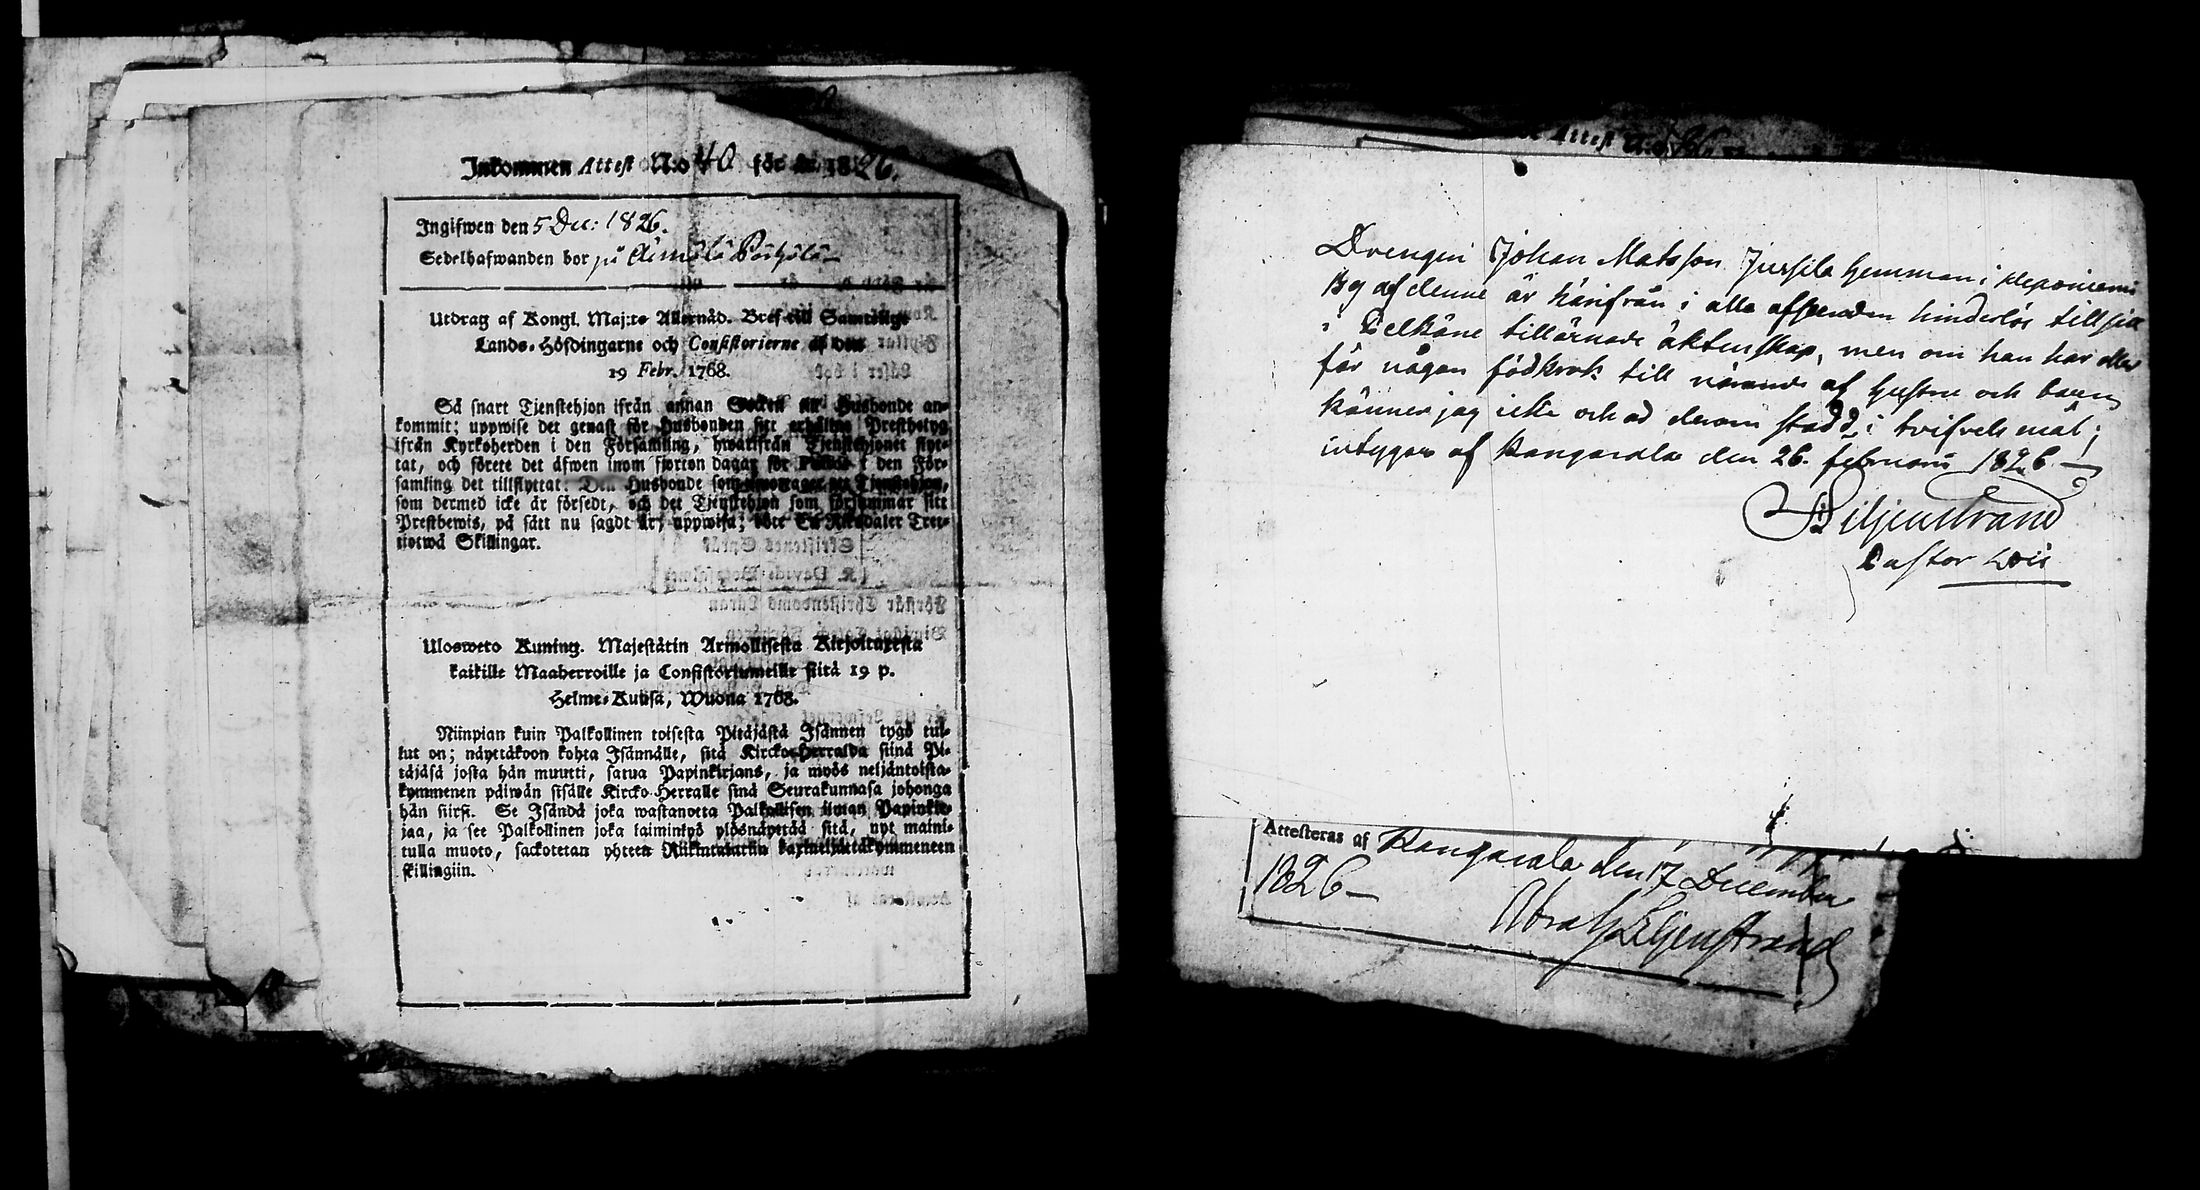 Inkommen Attest N:o 40 för år 1826.
Ingifwen den 5 Dec: 1826.
Sedelhafwanden bor på
Utdrag af Kongl. Maj:ts Allernåd. Bref till Samtelige
Lands-Höfdingarne och Consistorierne af den
19 Febr. 1768.
Så snart Tjenstehjon ifrån annan Socken til Husbonde an-
kommit; uppwise det genast för Husbonden sitt erhållna Prestbetyg
ifrån Kyrkoherden i den Församling, hwarifrån Tjenstehjonet flyt-
tat, och förete det äfwen inom fjorton dagar för i den För-
samling det tillflyttat. Den Husbonde som emottager ett Tjenstehjon,
som dermed icke är försedt, och det Tjenstehjon som försummar sitt
Prestbewis, på sätt nu sagdt är, uppwisa; böte En Riksdaler Tret-
tiotwå Skillingar.
Ulosweto Kuning. Majestätin Armollisesta Kirjoituxesta
kaikille Maaherroille ja Consistoriumeille siitä 19 p.
Helme-Kuusa, Wuona 1768.
Niinpian kuin Palkollinen toisesta Pitäjästä Isännen tygö tul-
lut on; näyttäkoon kohta Isännälle, sitä Kircko-Herralda siinä Pi-
täjäsä josta hän muutti, saatua Papinkirjans, ja myös neljäntoista-
kymmenen päiwän sisälle Kircko-Herralle sinä Seurakunnasa johonga
hän siirsi. Se Isändä joka wastanotta Palkollisen ilman Papinkir-
jaa, ja see Palkollinen joka laiminlyö ylösnäyttää sitä, nyt maini-
tulla muoto, sackotetan yhteen Riikintalariin kaxineljättäkymmeneen
skillingiin.
Attest N:o
Drengen Johan Matsson Jussila hemman i
By af denne är härifrån i alla afseenden hinderlös till sitt
i Pelkäne tillärnade äktenskap, men om han har eller
får någon födkrok till närande af hustru och barn
känner jag icke och ad derom stadd i tvifvels mål;
intygar af Kangasala den 26. februarii 1826
Liljenstrand
Pastor Loci
Attesteras af Kangasala den 17 December
1826
Abrah Liljenstrand